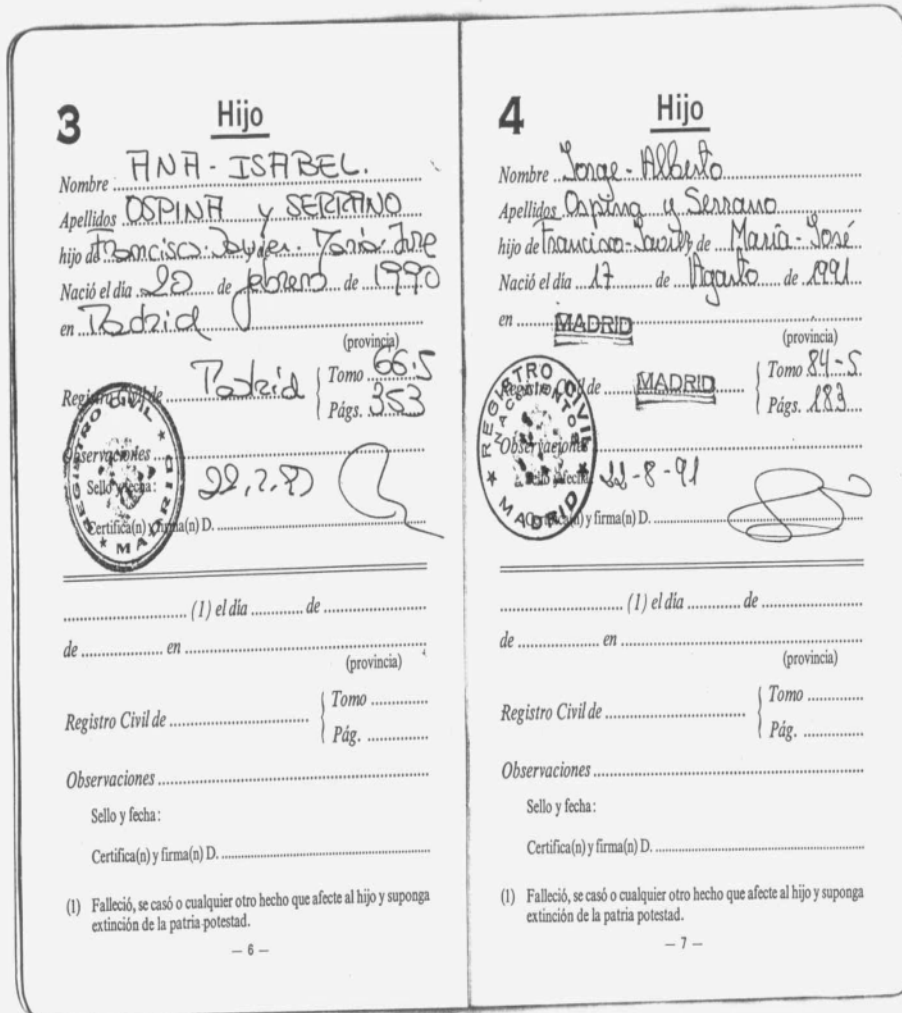 3 Hijo
Nombre ANA-ISABEL.
Apellidos OSPINA y SERRANO
hijo de Francisco-Javier. María-José
Nació el día 20 de febrero de 1990
en Madrid
(provincia)
Registro Civil de Madrid Tomo 66.5
Págs. 353
Observaciones
Sello y fecha:
Certifica(n) y firma(n) D.
REGISTRO CIVIL
★ MADRID ★
(1) el día de
de en
(provincia)
Registro Civil de Tomo
Pág.
Observaciones
Sello y fecha:
Certifica(n) y firma(n) D.
(1) Falleció, se casó o cualquier otro hecho que afecte al hijo y suponga
extinción de la patria potestad.
— 6 —
4 Hijo
Nombre Jorge-Alberto
Apellidos Ospina y Serrano
hijo de Francisco-Javier y de María-José
Nació el día 17 de Agosto de 1991
en MADRID
(provincia)
Registro Civil de MADRID Tomo 84-5.
Págs. 183
Observaciones
Sello y fecha: 22-8-91
Certifica(n) y firma(n) D.
REGISTRO CIVIL
NACIMIENTOS
★ MADRID ★
(1) el día de
de en
(provincia)
Registro Civil de Tomo
Pág.
Observaciones
Sello y fecha:
Certifica(n) y firma(n) D.
(1) Falleció, se casó o cualquier otro hecho que afecte al hijo y suponga
extinción de la patria potestad.
— 7 —